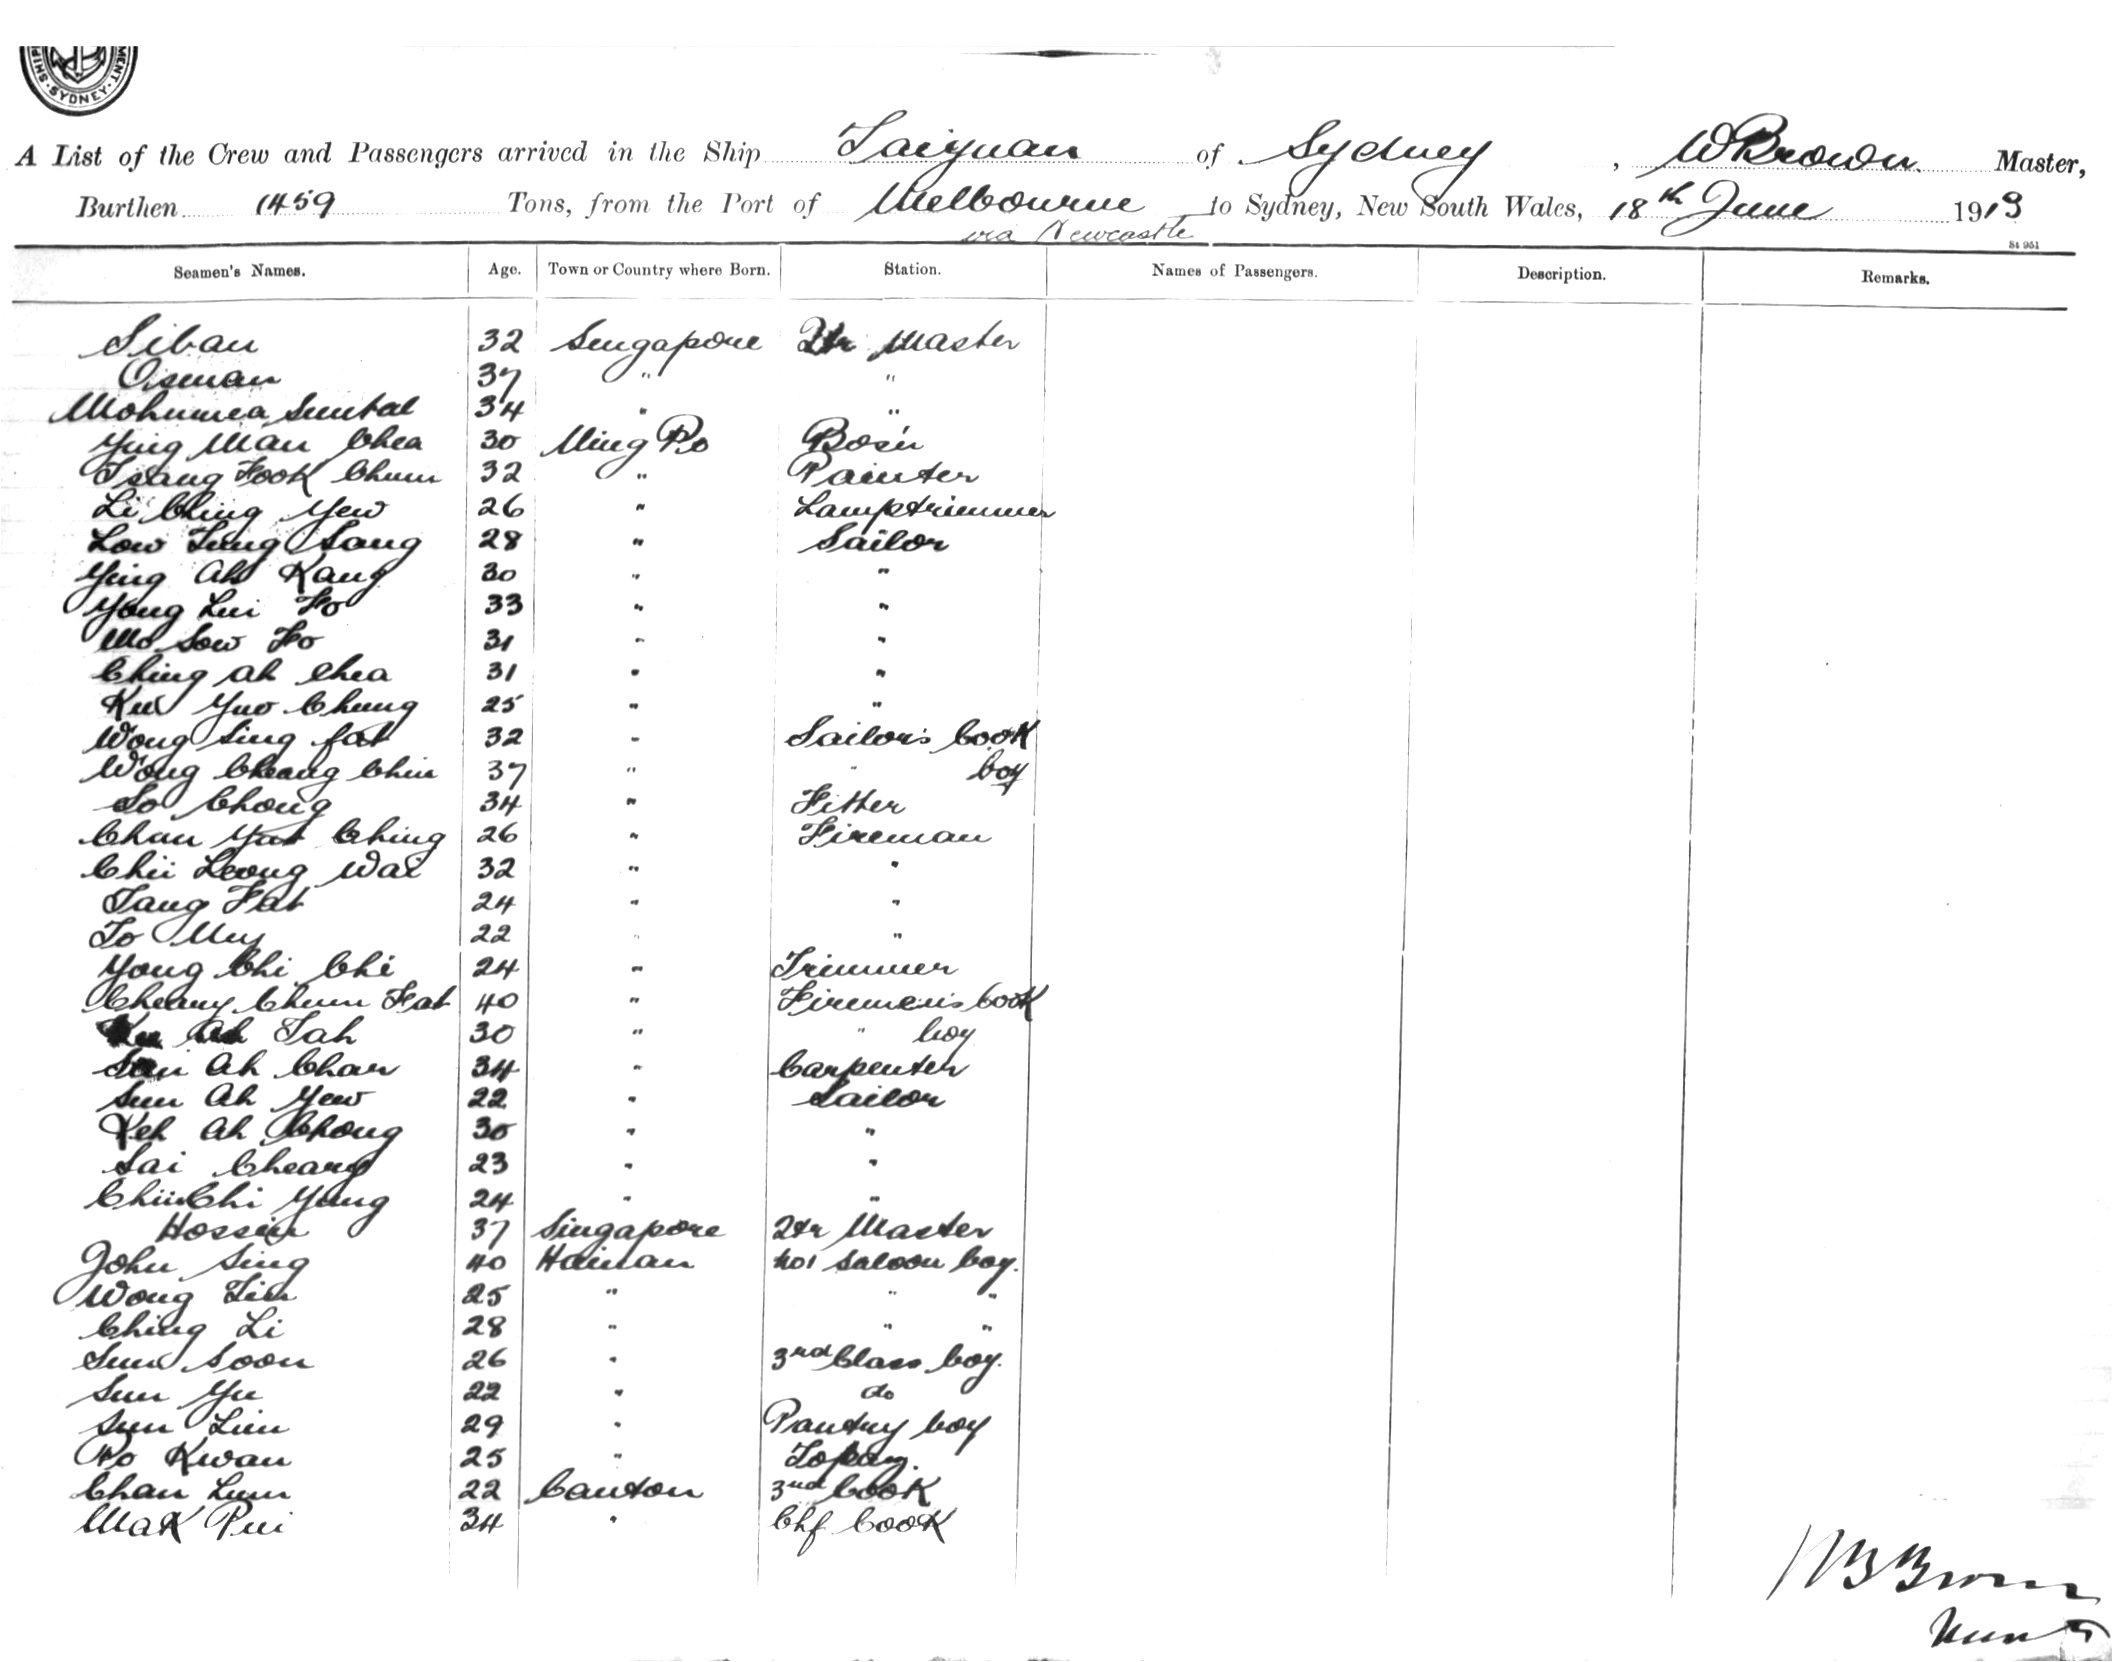 SHIP MENT. SYDNEY.
A List of the Crew and Passengers arrived in the Ship Taiyuan of Sydney, W Brown. Master,
Burthen 1459 Tons, from the Port of Melbourne to Sydney, New South Wales, 18th June 1913
via Newcastle
St 951
Seamen's Names. Age. Town or Country where Born. Station. Names of Passengers. Description. Remarks.
Siban 32 Singapore Qtr Master
Osman 37 " "
Mohumea Suntal 34 " "
Ying Man Chea 30 Ning Po Bos'n
Tsang Fook Chun 32 " Painter
Li Ching Yew 26 " Lamptrimmer
Low Tung Sang 28 " Sailor
Ying Ah Kang 30 " "
Yong Lui Fo 33 " "
Mo Sow Fo 31 " "
Ching Ah Chea 31 " "
Yuo Chung 25 " "
Wong Sing fat 32 " Sailor's Cook
Wong Cheang Chin 37 " " boy
So Chong 34 " Fitter
Chan Yat Ching 26 " Fireman
Chii Leong Wai 32 " "
Tang Fat 24 " "
To Muy 22 " "
Yong Chi Chi 24 " Trimmer
Cheang Chun Fat 40 " Firemen's Cook
Ah Tah 30 " " boy
Ah Chan 34 " Carpenter
Sun Ah Yew 22 " Sailor
Keh Ah Chong 30 " "
Sai Cheang 23 " "
Chiu Chi Yung 24 " "
Hossin 37 Singapore Qtr Master
John Sing 40 Hainan No1 Saloon boy.
Wong Lim 25 " " "
Ching Li 28 " " "
Sun Soon 26 " 3rd Class boy.
Sun Yu 22 " do
Sun Lim 29 " Pantry boy
Po Kwan 25 " Topay.
Chan Lum 22 Canton 3rd Cook
Mak Pui 34 " Chf Cook
W Brown